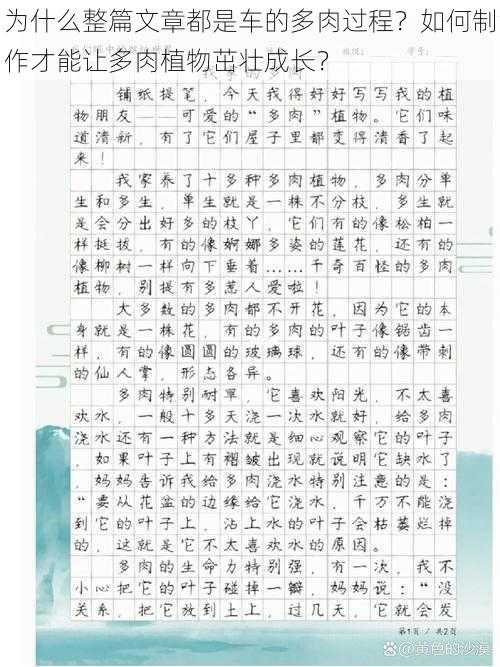 为什么整篇文章都是车的多肉过程？如何制
作才能让多肉植物茁壮成长？
铺纸提笔，今天我得好好写写我的植
物朋友——可爱的“多肉”植物。它们味
道清新，有了它们屋子里都变得清香了起
来！
我家养了十多种多肉植物，多肉分单
生和多生，单生就是一株不分枝，多生就
是会分出好多的枝丫，它们有的像松柏一
样挺拔，有的像婀娜多姿的莲花，还有的
像柳树一样向下垂着……千奇百怪的多肉
植物，别提有多惹人爱啦！
大多数的多肉都不开花，因为它的本
身就是一株花，有的多肉的叶子像锯齿一
样，有的像圆圆的玻璃球，还有的像带刺
的仙人掌，形态各异。
多肉特别耐旱，它喜欢阳光，不太喜
欢水，一般十多天浇一次水就好，给多肉
浇水还有一种方法就是细心观察它的叶子
，如果叶子上有褶皱出现就说明它缺水了
，妈妈告诉我给多肉浇水特别注意的是：
“要从花盆的边缘给它浇水，千万不能浇
到它的叶子上，沾上水的叶子会枯萎烂掉
的，这就是它不太喜欢水的原因。
多肉的生命力特别强，有一次，我不
小心把它的叶子碰掉一瓣，妈妈说：“没
关系，把它放到土上，过几天，它就会发
第1页 / 共2页
@黄色的沙漠